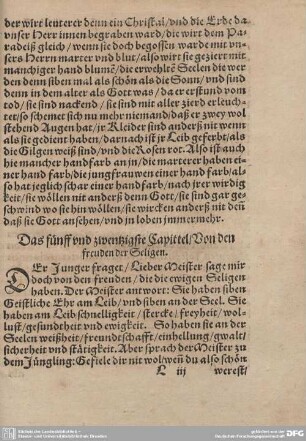 der wirt lauterer denn ein Christal/ vnd die Erde da
vnser Herr innen begraben ward/ die wirt dem Pa-
radeiß gleich/ wenn sie doch begossen warde mit vn-
sers Herrn marter vnd blut/ also wirt sie geziert mit
manchiger hand blumẽ/ die erwehltẽ Seelen die wer
den denn siben mal als schön als die Soñ/ vnd sind
denn in dem alter als Gott was/ da er erstund vom
tod/ sie sind nackend/ sie sind mit aller zierd erleuch-
ter/ so schemet sich nu mehr niemand/ daß er zwey wol
stehend Augen hat/ jr Kleider sind anderß nit wenn
als sie gedient haben/ darnach ist jr Leib geferbt/ als
die Gilgen weiß sind/ vnd die Rosen rot. Also ist auch
hie mancher handfarb an jn/ die marterer haben ei-
ner hand farb/ die jungfrauwen einer hand farb/ al
so hat jeglich schar einer hand farb/ nach jrer wirdig
keit/ sie wöllen nit anderß denn Gott/ sie sind gar ge-
schwind wo sie hin wöllen/ sie wircken anderß mit deñ
daß sie Gott ansehen/ vnd in loben jmmermehr.
Das fünff vnd zwentzigste Capittel/ Von den
freuden der Seligen.
DEr Junger fraget/ Lieber Meister sage mir
doch von den freuden/ die die ewigen Seligen
haben. Der Meister antwort: Sie haben siben
Geistliche Ehr am Leib/ vnd siben an der Seel. Sie
haben am Leib schnelligkeit/ stercke/ freyheit/ wol-
lust/ gesundtheit vnd ewigkeit. So haben sie an der
Seelen weißheit/ freundtschafft/ einhellung/ gwalt/
sicherheit vnd stätigkeit. Aber sprach der Meister zu
dem Jüngling: Gefiele dir nit wol/ weñ du also schön
L iij werest/